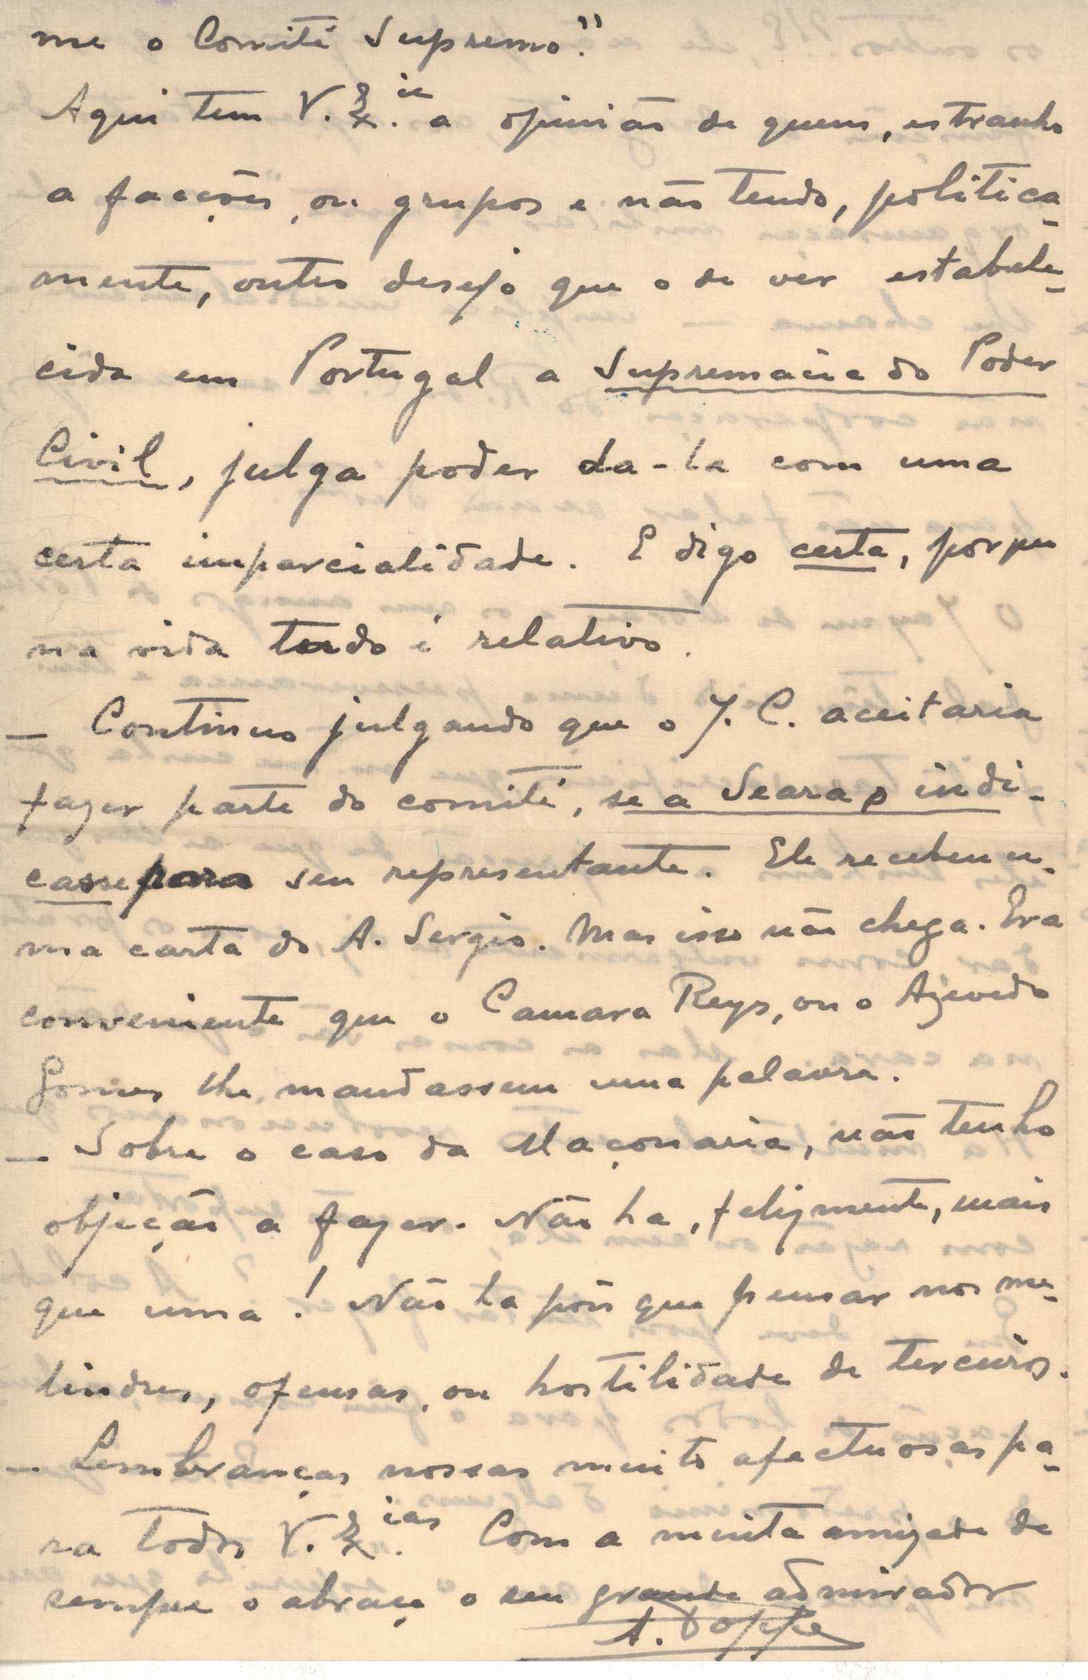 me o Comité Supremo."
Aqui tem V. Ex.ia a opinião de quem, estranho
a facções, ou grupos e não tendo, politica-
mente, outro desejo que o de ver estabele-
cida em Portugal a Supremacia do Poder
Civil, julga poder da-la com uma
certa imparcialidade. E digo certa, porque
na vida tudo é relativo.
— Continuo julgando que o J. C. aceitaria
fazer parte do comité, se a Seara o indi-
casse para seu representante. Ele recebeu u-
ma carta do A. Sergio. Mas isso não chega. Era
conveniente que o Camara Reys, ou o Azevedo
Gomes lhe mandassem uma palavra.
— Sobre o caso da Maçonaria, não tenho
objeção a fazer. Não ha, felizmente, mais
que uma! Não ha pois que pensar nos me-
lindres, ofensas, ou hostilidade de terceiros.
— Lembranças nossas muito afectuosas pa-
ra todos V. Ex.ias Com a muita amizade de
sempre o abraça o seu grande admirador